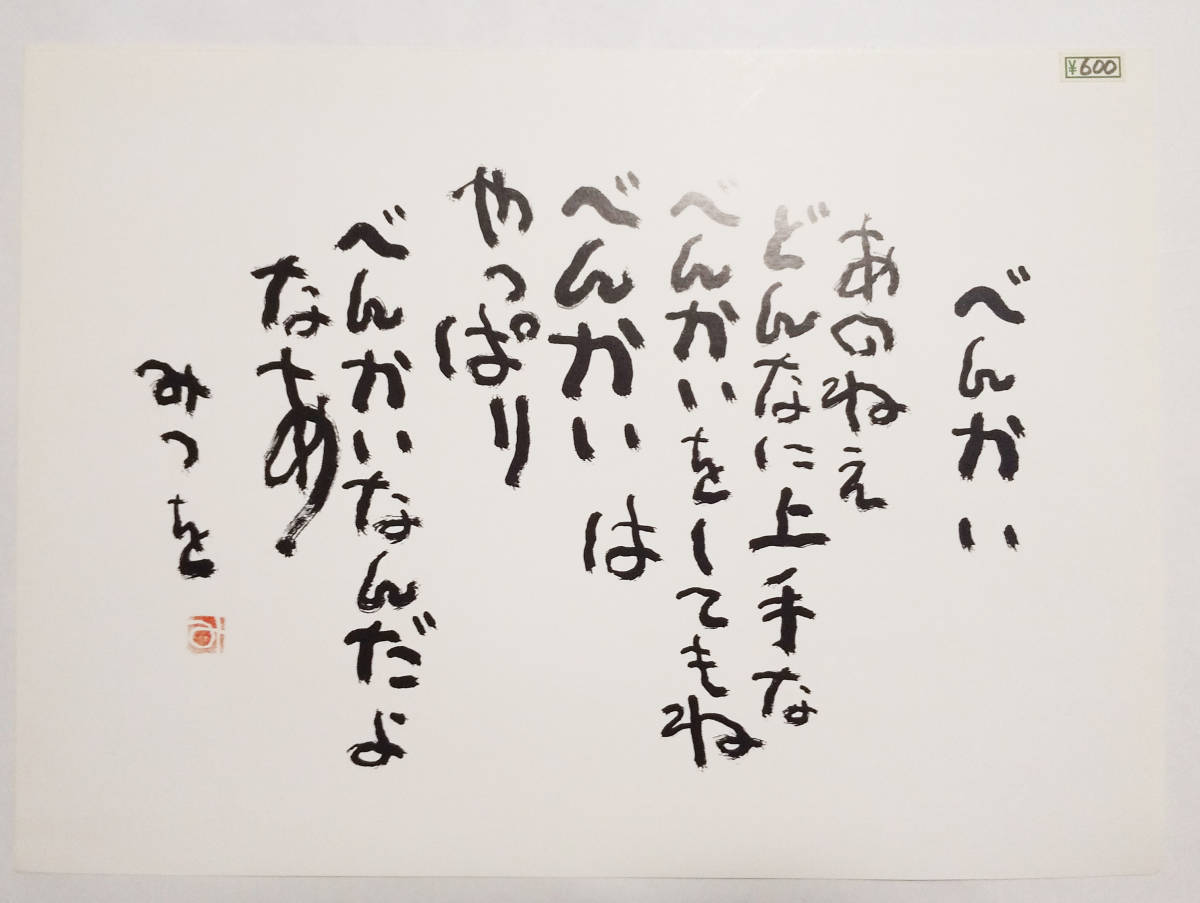 べんかい
あのねえ
どんなに上手な
べんかいをしてもね
べんかいは
やっぱり
べんかいなんだよ
なああ
みつを
み
¥600